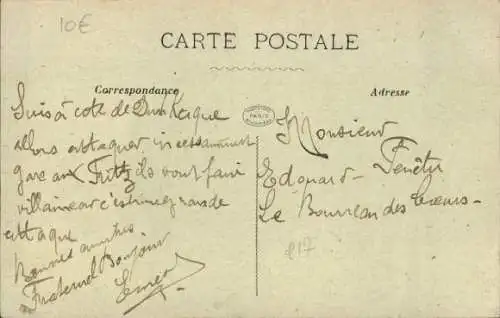 10€
CARTE POSTALE
Correspondance
Adresse
PARIS
Suis à coté de Dunkerque
allons attaquer incessamment
gare aux Fritz ils vont faire
villaine car c'est une grande
attaque
Bonnes amities.
Fraternel Bonjour
Monsieur
Edouard
Le Bourreau des Coeurs.
e17